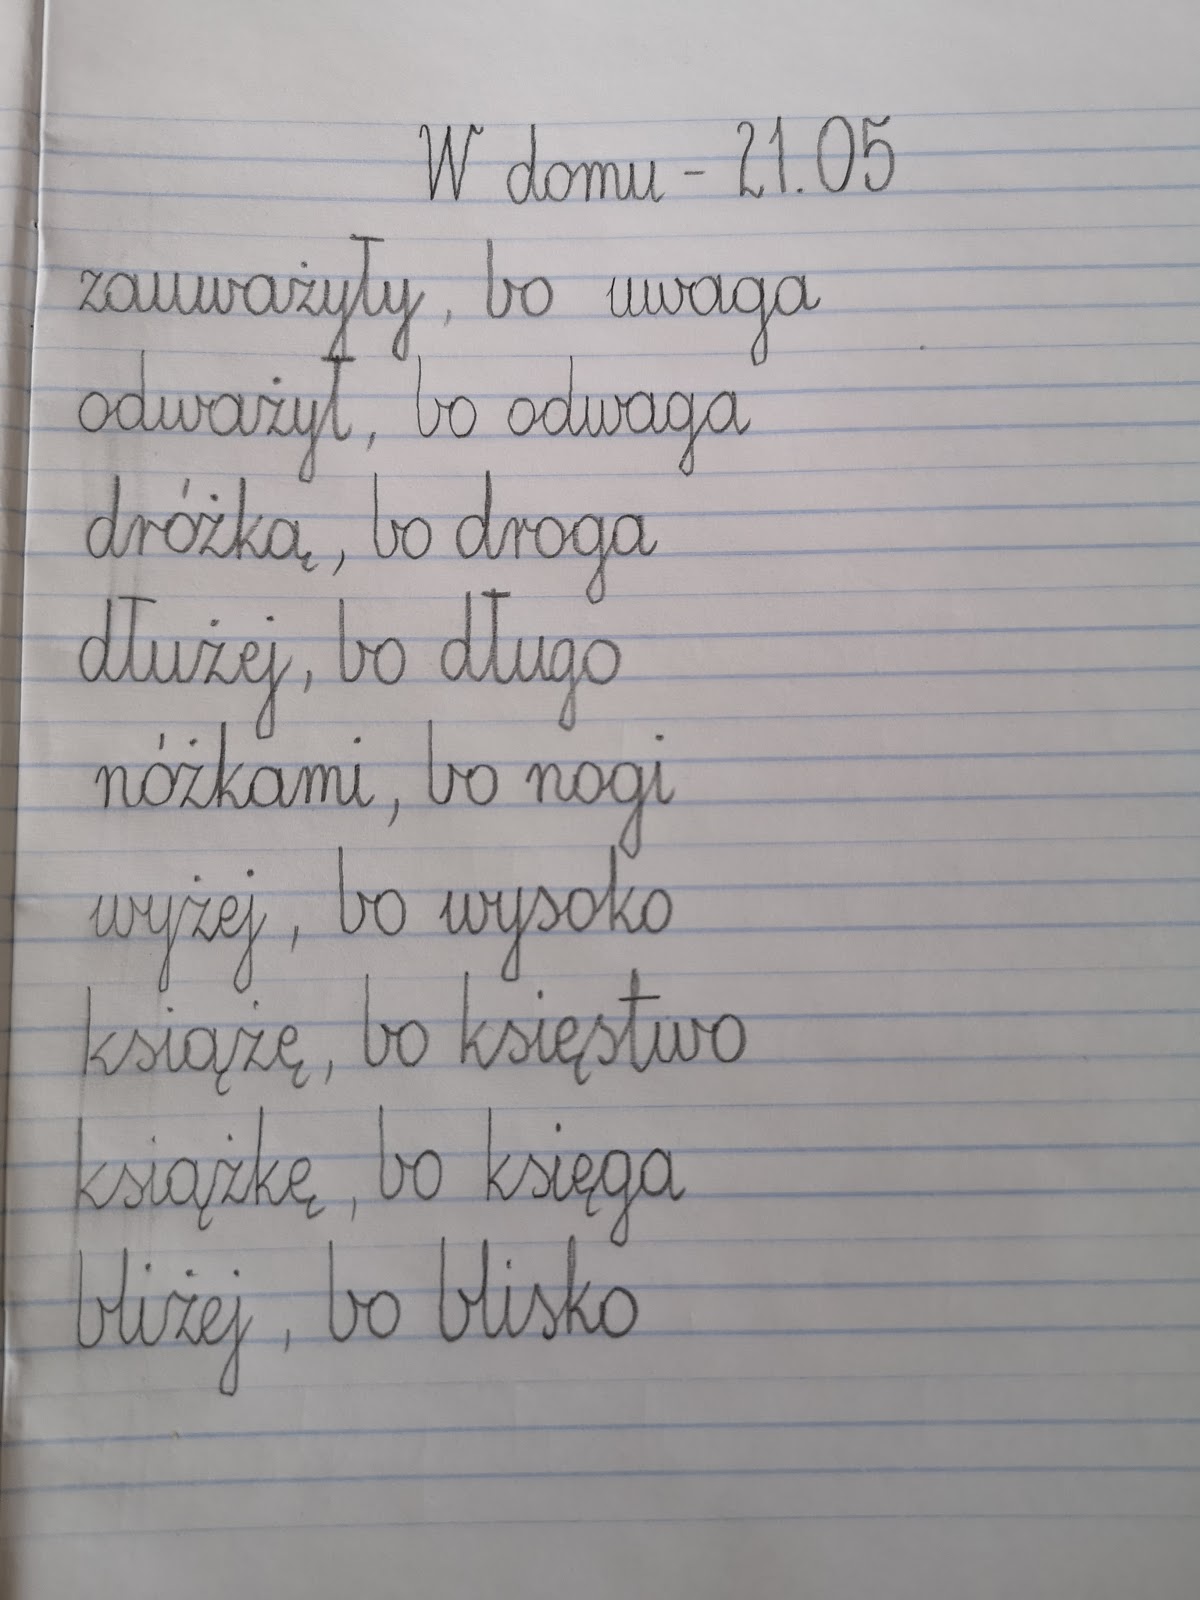 W domu - 21.05
zauważyły, bo uwaga
odważył, bo odwaga
dróżką, bo droga
dłużej, bo długo
nóżkami, bo nogi
wyżej, bo wysoko
książę, bo księstwo
książkę, bo księga
bliżej, bo blisko